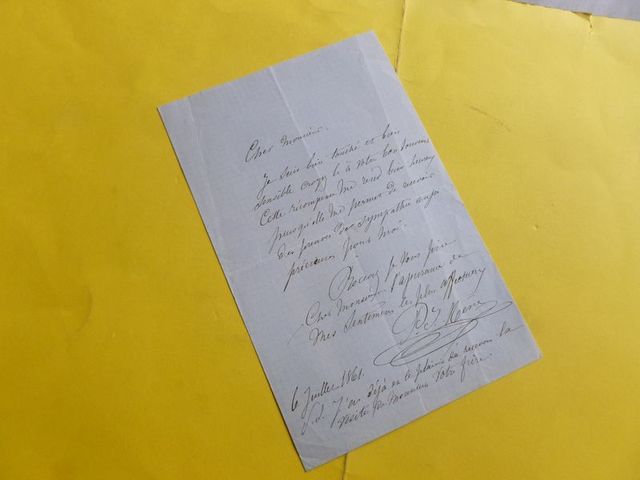 Cher Monsieur,
Je suis bien touché et bien
sensible croyez le à votre bon souvenir
Cette récompense me rend bien heureux
puisqu'elle me permet de recevoir
des preuves de sympathie aussi
précieuses pour moi.
Recevez je vous prie
Cher Monsieur l'assurance de
mes sentiments les plus affectueux
P J Mène
6 Juillet 1861.
P.S. J'ai déjà eu le plaisir de recevoir la
visite de Monsieur votre frère.